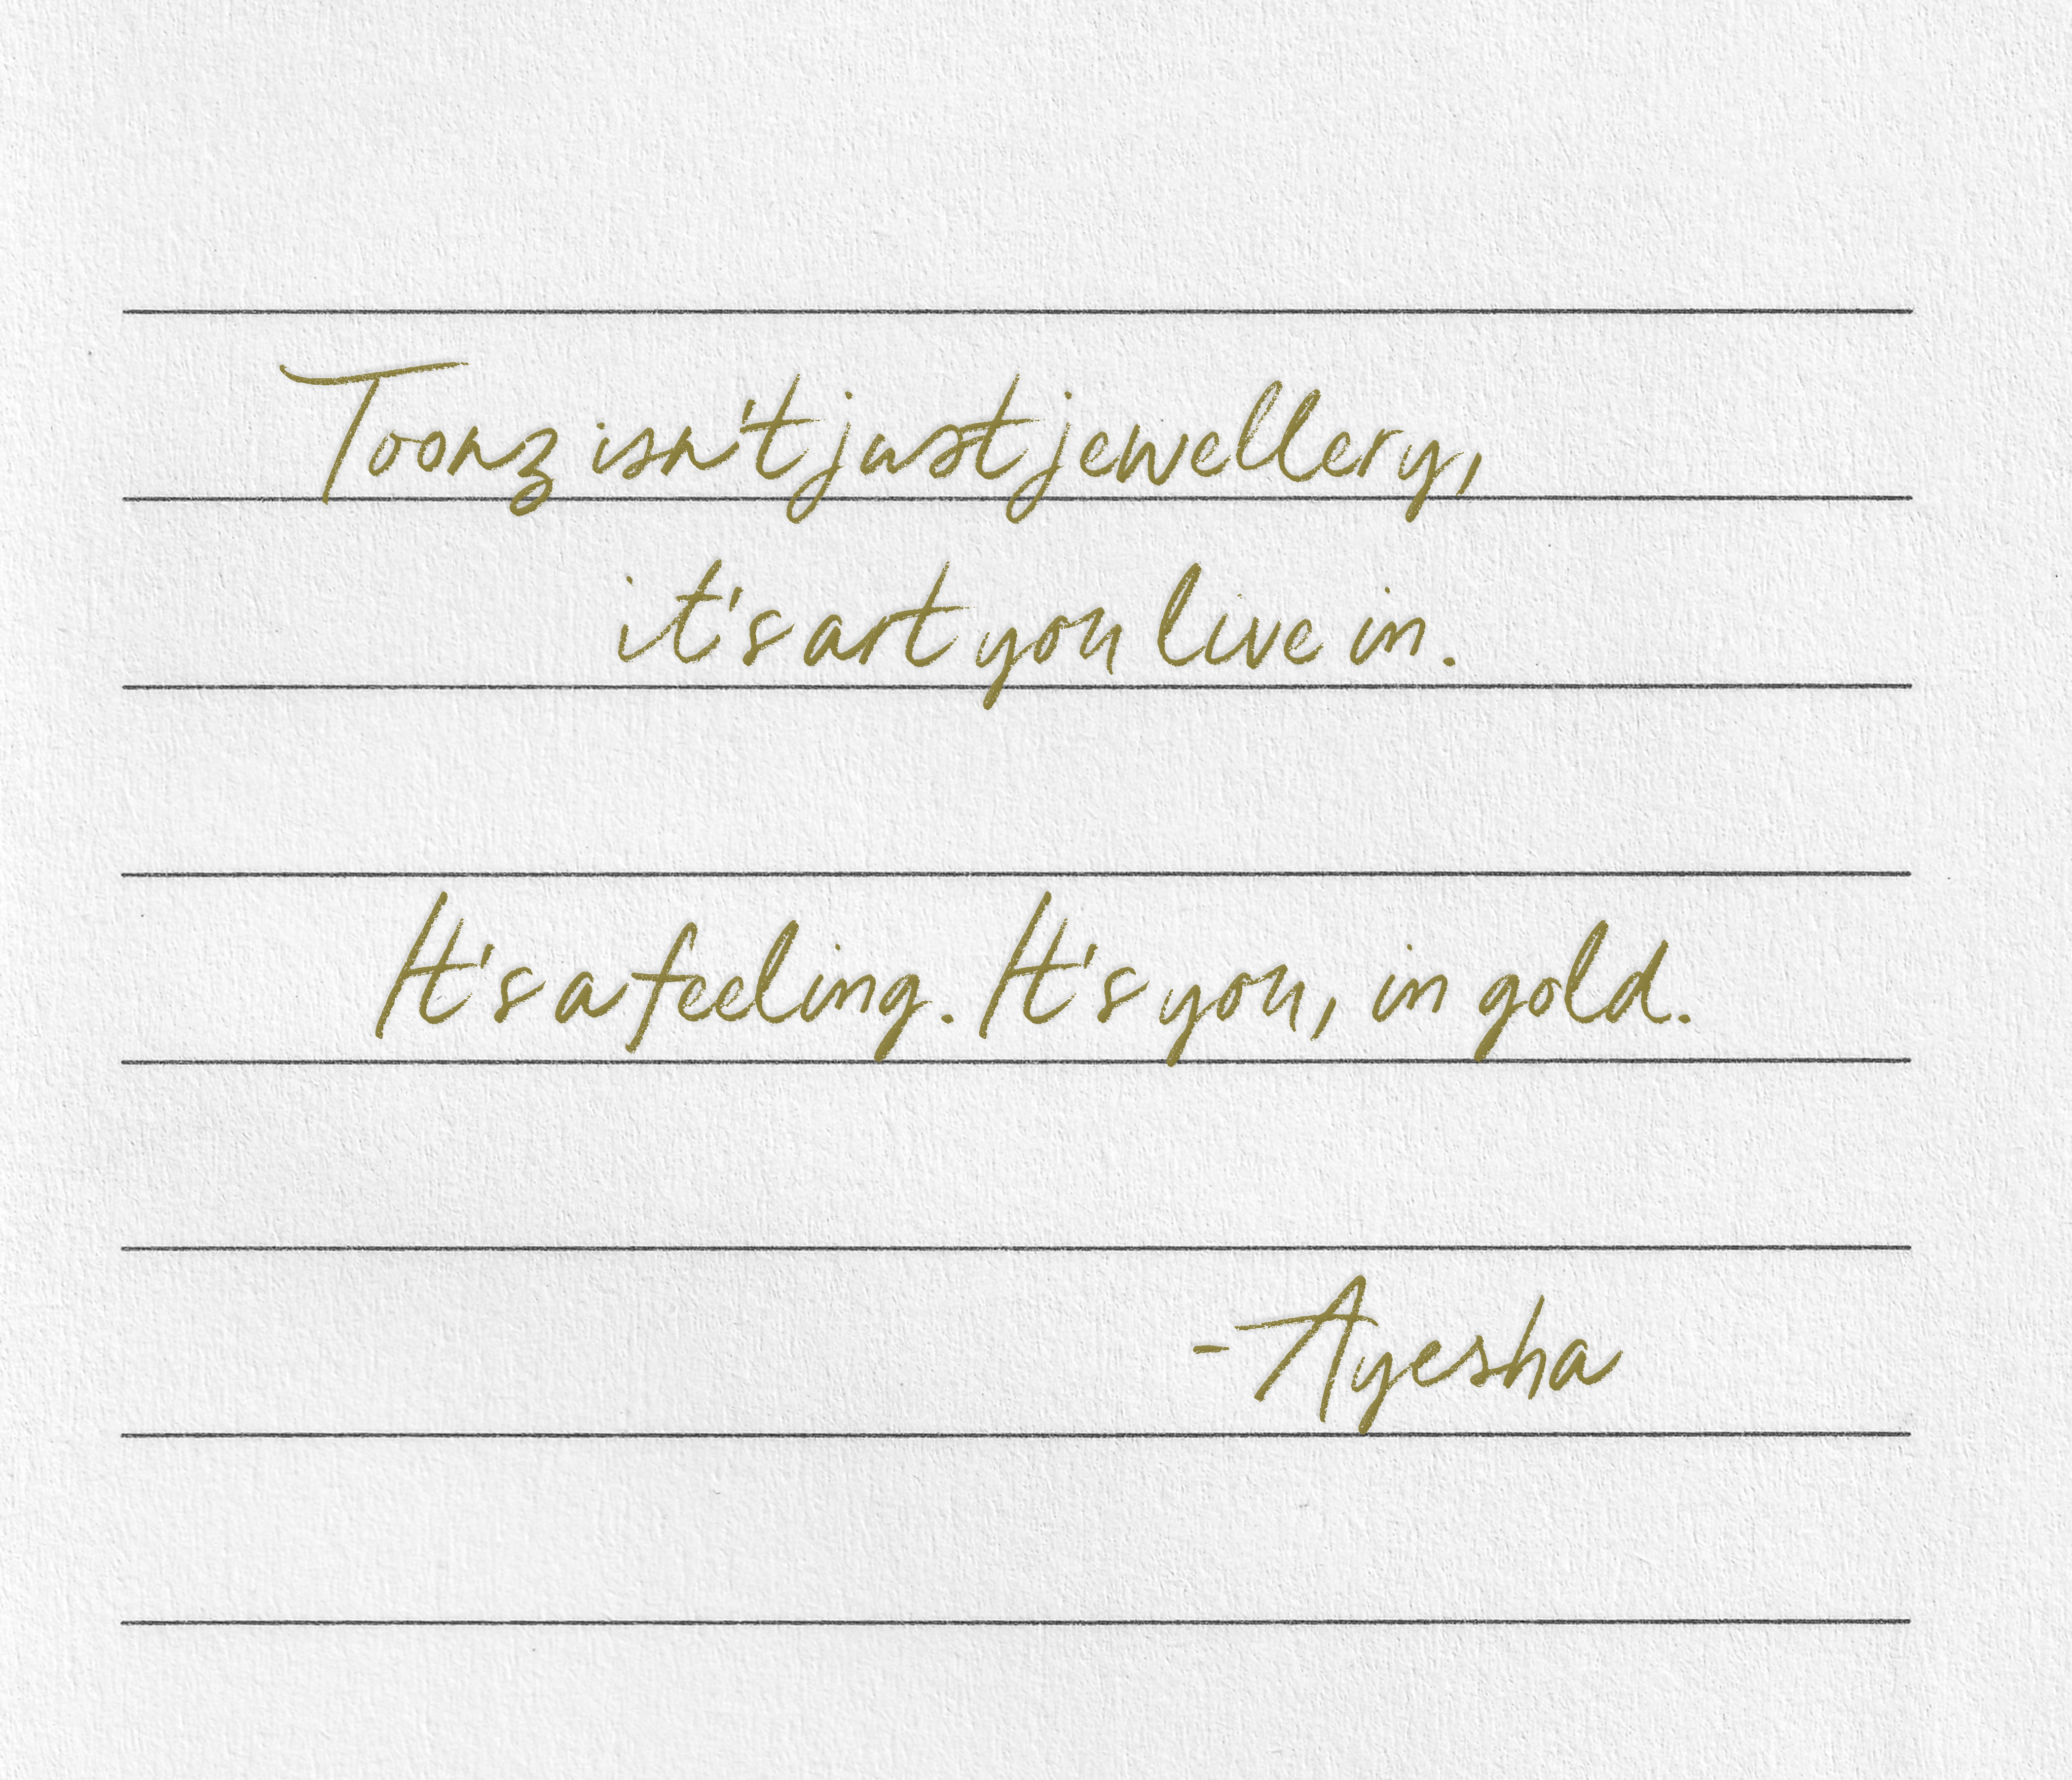 Toonz isn't just jewellery,
it's art you live in.
It's a feeling. It's you, in gold.
-Ayesha